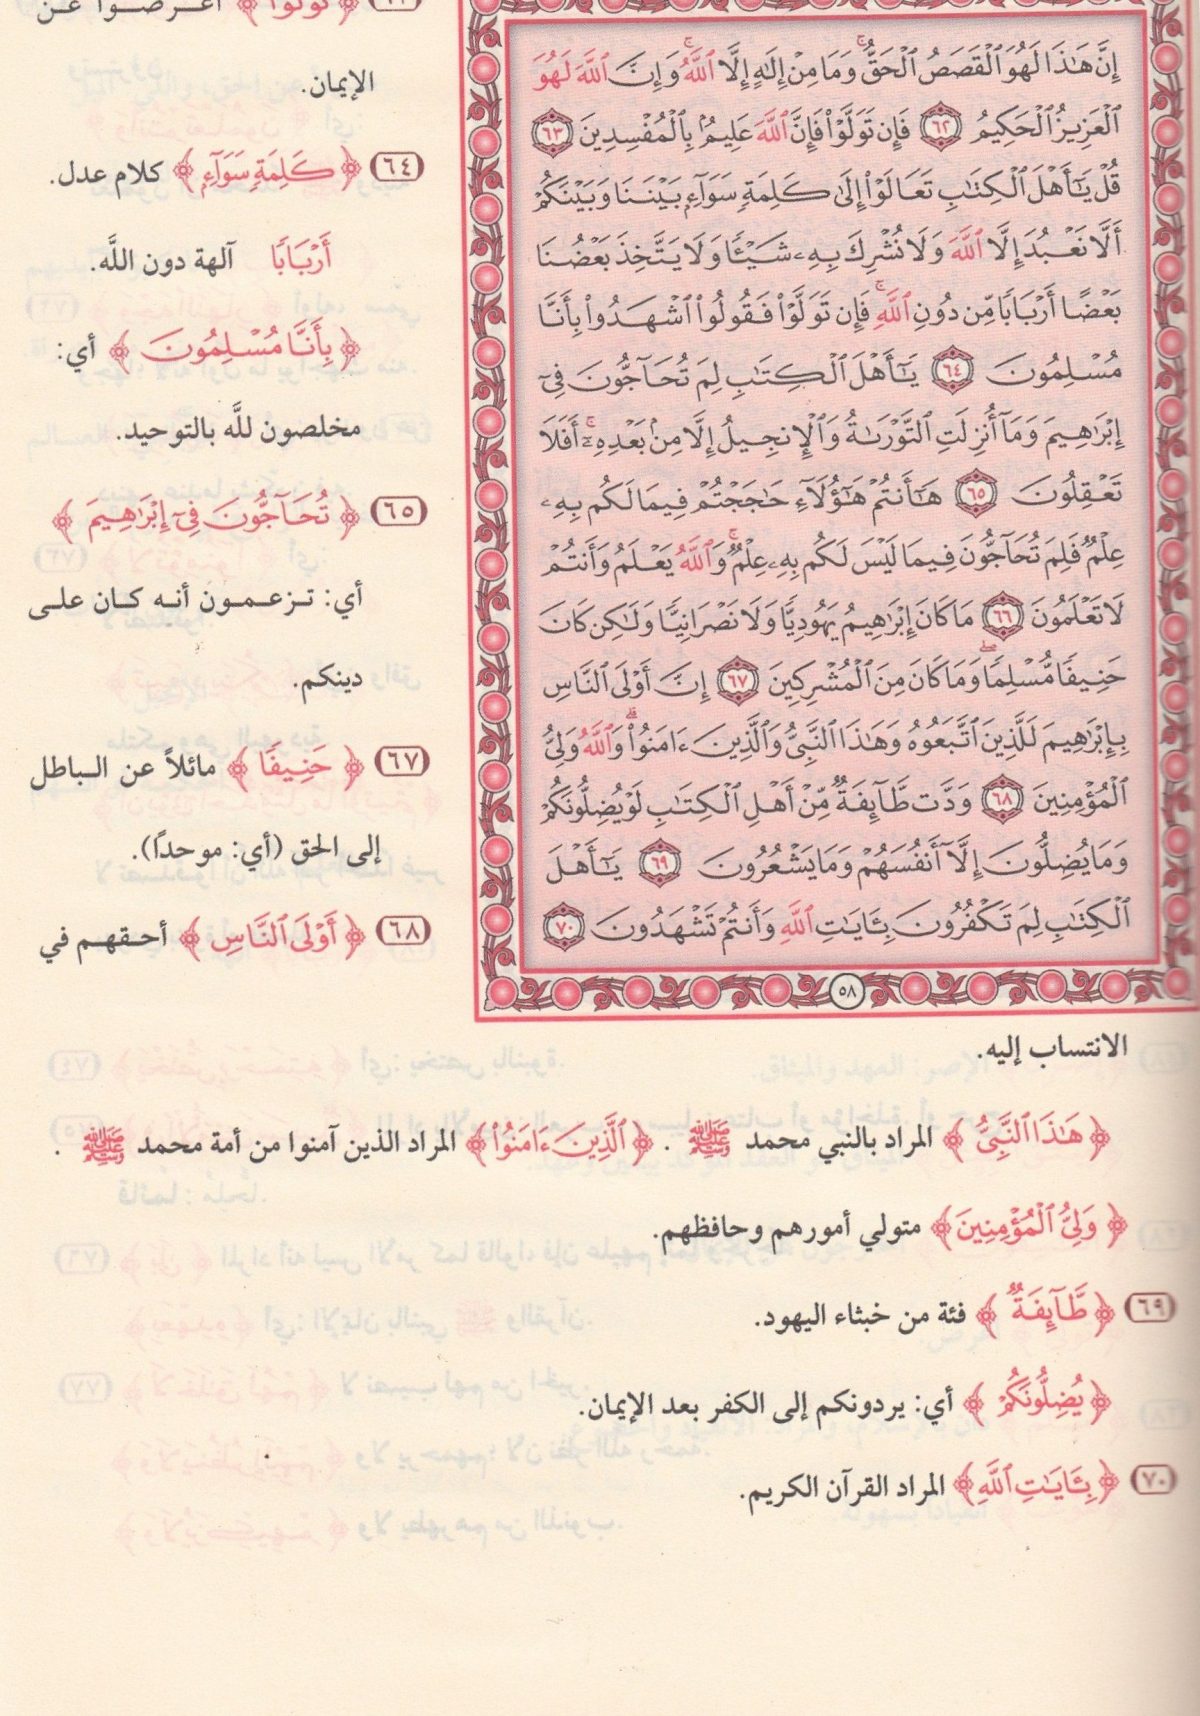 إِنَّ هَٰذَا لَهُوَ ٱلْقَصَصُ ٱلْحَقُّ ۚ وَمَا مِنْ إِلَٰهٍ إِلَّا ٱللَّهُ ۚ وَإِنَّ ٱللَّهَ لَهُوَ
ٱلْعَزِيزُ ٱلْحَكِيمُ ٦٢ فَإِن تَوَلَّوْا۟ فَإِنَّ ٱللَّهَ عَلِيمٌۢ بِٱلْمُفْسِدِينَ ٦٣
قُلْ يَٰٓأَهْلَ ٱلْكِتَٰبِ تَعَالَوْا۟ إِلَىٰ كَلِمَةٍ سَوَآءٍۭ بَيْنَنَا وَبَيْنَكُمْ
أَلَّا نَعْبُدَ إِلَّا ٱللَّهَ وَلَا نُشْرِكَ بِهِۦ شَيْـًٔا وَلَا يَتَّخِذَ بَعْضُنَا
بَعْضًا أَرْبَابًا مِّن دُونِ ٱللَّهِ ۚ فَإِن تَوَلَّوْا۟ فَقُولُوا۟ ٱشْهَدُوا۟ بِأَنَّا
مُسْلِمُونَ ٦٤ يَٰٓأَهْلَ ٱلْكِتَٰبِ لِمَ تُحَآجُّونَ فِىٓ
إِبْرَٰهِيمَ وَمَآ أُنزِلَتِ ٱلتَّوْرَىٰةُ وَٱلْإِنجِيلُ إِلَّا مِنۢ بَعْدِهِۦٓ ۚ أَفَلَا
تَعْقِلُونَ ٦٥ هَٰٓأَنتُمْ هَٰٓؤُلَآءِ حَٰجَجْتُمْ فِيمَا لَكُم بِهِۦ
عِلْمٌ فَلِمَ تُحَآجُّونَ فِيمَا لَيْسَ لَكُم بِهِۦ عِلْمٌ ۚ وَٱللَّهُ يَعْلَمُ وَأَنتُمْ
لَا تَعْلَمُونَ ٦٦ مَا كَانَ إِبْرَٰهِيمُ يَهُودِيًّا وَلَا نَصْرَانِيًّا وَلَٰكِن كَانَ
حَنِيفًا مُّسْلِمًا ۖ وَمَا كَانَ مِنَ ٱلْمُشْرِكِينَ ٦٧ إِنَّ أَوْلَى ٱلنَّاسِ
بِإِبْرَٰهِيمَ لَلَّذِينَ ٱتَّبَعُوهُ وَهَٰذَا ٱلنَّبِىُّ وَٱلَّذِينَ ءَامَنُوا۟ ۗ وَٱللَّهُ وَلِىُّ
ٱلْمُؤْمِنِينَ ٦٨ وَدَّت طَّآئِفَةٌ مِّنْ أَهْلِ ٱلْكِتَٰبِ لَوْ يُضِلُّونَكُمْ
وَمَا يُضِلُّونَ إِلَّآ أَنفُسَهُمْ وَمَا يَشْعُرُونَ ٦٩ يَٰٓأَهْلَ
ٱلْكِتَٰبِ لِمَ تَكْفُرُونَ بِـَٔايَٰتِ ٱللَّهِ وَأَنتُمْ تَشْهَدُونَ ٧٠
٥٨
﴿تَوَلَّوْا۟﴾ أعرضوا عن
الإيمان.
٦٤ ﴿كَلِمَةٍ سَوَآءٍۭ﴾ كلام عدل.
أَرْبَابًا آلهة دون اللَّه.
﴿بِأَنَّا مُسْلِمُونَ﴾ أي:
مخلصون للَّه بالتوحيد.
٦٥ ﴿تُحَآجُّونَ فِىٓ إِبْرَٰهِيمَ﴾
أي: تزعمون أنه كان على
دينكم.
٦٧ ﴿حَنِيفًا﴾ مائلاً عن الباطل
إلى الحق (أي: موحداً).
٦٨ ﴿أَوْلَى ٱلنَّاسِ﴾ أحقهم في
الانتساب إليه.
﴿هَٰذَا ٱلنَّبِىُّ﴾ المراد بالنبي محمد ﷺ. ﴿ٱلَّذِينَ ءَامَنُوا۟﴾ المراد الذين آمنوا من أمة محمد ﷺ.
﴿وَلِىُّ ٱلْمُؤْمِنِينَ﴾ متولي أمورهم وحافظهم.
٦٩ ﴿طَّآئِفَةٌ﴾ فئة من خبثاء اليهود.
﴿يُضِلُّونَكُمْ﴾ أي: يردونكم إلى الكفر بعد الإيمان.
٧٠ ﴿بِـَٔايَٰتِ ٱللَّهِ﴾ المراد القرآن الكريم.